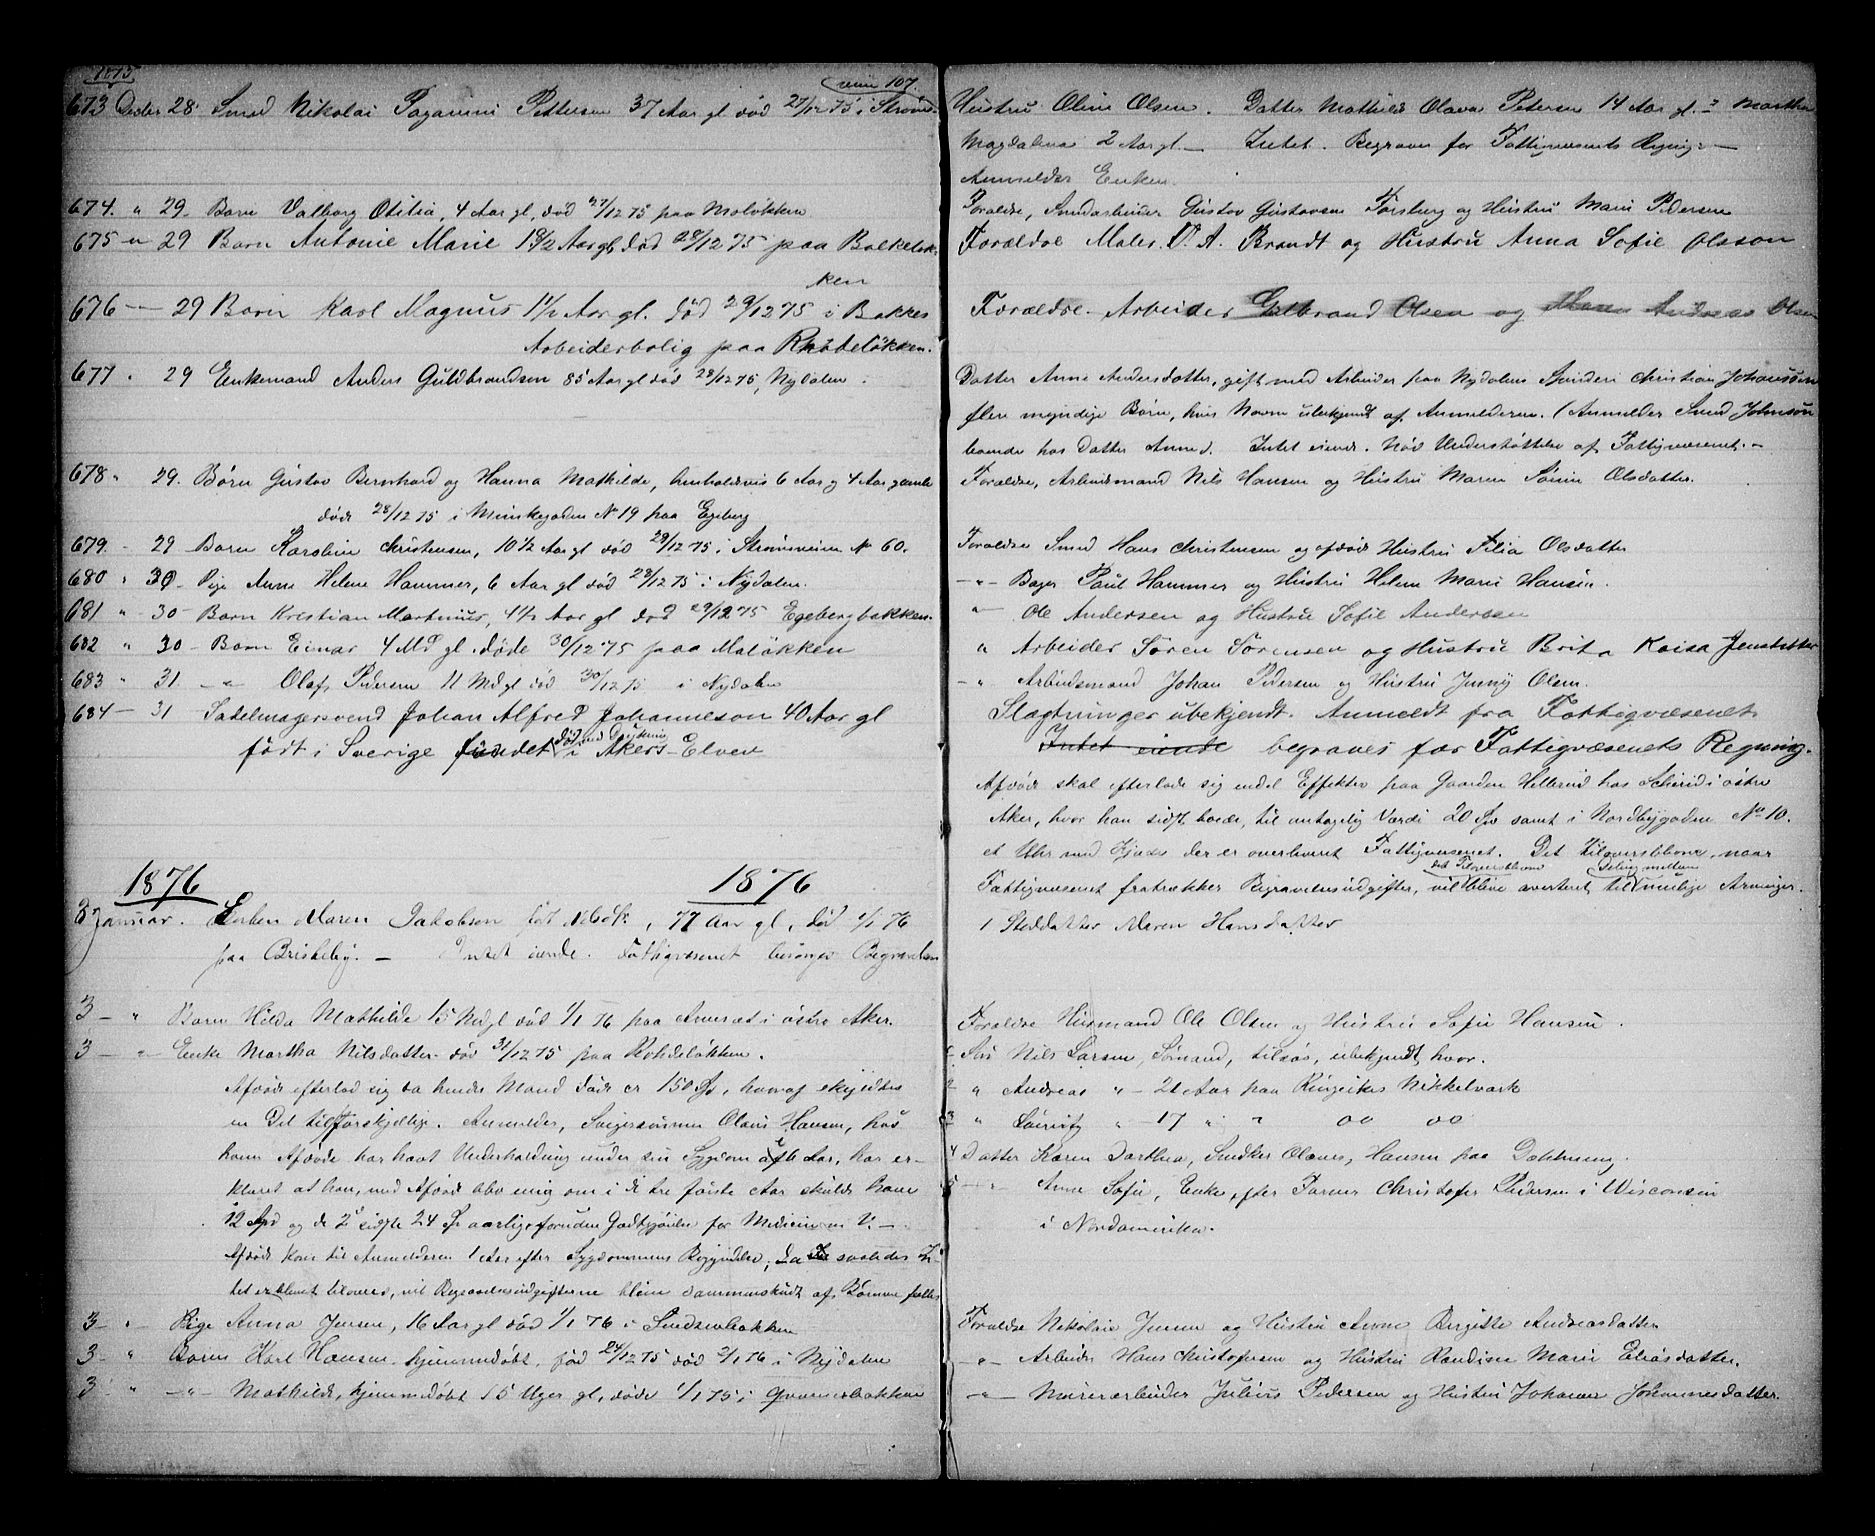 1875
107.
673 Decbr 28 Smed Nikolai Paganini Pettersen 37 Aar gl død 27/12 75 i Strøms-
Hustru Oline Olsen. Datter Mathilde Olava Petersen 14 Aar gl. 2 Martha
Magdalena 2 Aar gl. — Intet. Begraves for Fattigvæsenets Regning. —
Anmelder Enken.
674. " 29. Barn Valborg Otilia, 4 Aar gl, død 27/12 75 paa Moløkken
Forældre, Smedarbeider Gustov Gustavsen Forsberg og Hustru Marie Pedersen
675 — " 29 Barn Antonie Marie 1 8/12 Aar gl død 28/12 75 paa Balkeløk-
ken
Forældre Maler. P. A. Brandt og Hustru Anna Sofie Olsson
676 — — 29 Barn Karl Magnus 1 1/2 Aar gl. død 29/12 75 i Bakkes
Arbeiderbolig paa Rhodeløkken.
Forældre. Arbeider Gulbrand Olsen og Andreas Olsen
677 " 29 Enkemand Anders Guldbrandsen 85 Aar gl død 28/12 75, Nydalen.
Datter Anne Andersdatter, gift med Arbeider paa Nydalens Spinderi Christian Johanssen
flere myndige Børn, hvis Navne ubekjendt af Anmelderen. (Anmelder Smed Johnson
boende hos Datter Anne). Intet eiende. Nød Understøttelse af Fattigvæsenet. —
678 " 29. Børn Gustav Bernhard og Hanna Mathilde, henholdsvis 6 Aar og 4 Aar gamle
døde 28/12 75 i Munkegaden No 19 paa Egeberg
Forældre, Arbeidsmand Nils Hansen og Hustru Maren Sørine Olsdatter.
679. - 29 Barn Karoline Christensen, 10 1/2 Aar gl død 29/12 75 i Strømsveien No 60.
Forældre Smed Hans Christensen og afdøde Hustru Filia Olsdatter
680 " 30. Pige Anne Helene Hammer, 6 Aar gl død 28/12 75 i Nydalen.
— " — Bager Paul Hammer og Hustru Helene Marie Hansen.
681 " 30 - Barn Kristian Martinius, 4 1/2 Aar gl død 29/12 75 Egebergbakken.
" — Ole Andersen og Hustru Sofie Andersen
682 " 30 - Barn Einar 4 Md gl. døde 30/12 75 paa Moløkken
" Arbeider Søren Sørensen og Hustru Brita Kaisa Jensdatter
683 " 31. — " — Olaf Pedersen 11 Md gl død 30/12 75 i Nydalen
— " Arbeidsmand Johan Pedersen og Hustru Jenny Olsen.
684 — 31 Sadelmagersvend Johan Alfred Johanneson 40 Aar gl
født i Sverige fundet død i Akers-Elven
Slagtninger ubekjendt. Anmeldt fra Fattigvæsenet.
Intet eiende begraves for Fattigvæsenets Regning.
Afdøde skal efterlade sig endel Effekter paa Gaarden Hellerud hos Schierud i østre
Aker, hvor han sidst boede, til antagelig Værdi 20 Sp samt i Nordbygaden No 10.
et Uhr med Kjæde der er overleveret Fattigvæsenet. Det Tiloversblevne, naar
Fattigvæsenet fratrækker Begravelsesudgifter, vil blive averteret til mulige Arvinger.
1876 1876
3 Januar. Enken Maren Jakobsen født , 77 Aar gl, død 1/1 76
paa Briskeby. — Intet eiende. Fattigvæsenet besørger Begravelsen
1 Steddatter Maren Hansdatter
3 — " Barn Hilda Mathilde 15 Md gl død 1/1 76 paa i østre Aker.
Forældre Husmand Ole Olsen og Hustru Sofie Hansen.
3 — " Enke Martha Nilsdatter død 31/12 75 paa Rohdeløkken.
Afdøde efterlod sig da hendes Mand døde cr 150 Sp, hvoraf skiftedes
en Del til forskjellige. Anmelder, Svigersønnen Olaus Hansen, hos
hvem Afdøde har havt Underholdning under sin Sygdom Aar, har er-
klæret at han, med Afdøde blev enig om i de tre første Aar skulde have
12 Spd og de 2 sidste 24 Sp aarlig foruden Godtgjørelse for Medicin m V. —
Afdøde kom til Anmelderen 1 Aar efter Sygdommens Begyndelse, da saaledes In-
tet er blevet tilovers, vil Begravelsesudgifterne blive sammenskudt af Børnene fælles
1 Søn Nils Larsen, Sømand, tilsøs, ubekjendt hvor.
2 " Andreas " — 21 Aar paa Ringerikes Nikkelværk
3 " " — 17 " " do do
4 Datter Karen Dorthea, Snedker Olaves, Hansen paa Dælenengen.
5 — " — Anne Sofie, Enke efter Farmer Christofer Pedersen i Wisconsin
i Nordamerika.
3 — " — Pige Anna Jensen, 16 Aar gl død 1/1 76 i Sandsenbakken
Forældre Nikolai Jensen og Hustru Anne Birgitte Andreasdatter
3 — " Barn Karl Hansen, hjemmedøbt, fød 24/12 75 død 2/1 76 i Nydalen
— " — Arbeider Hans Christofersen og Hustru Randine Marie Eliasdatter.
3 — " — " — Mathilde, hjemmedøbt 15 Uger gl, døde 1/1 75 i Qværnerbakken
— " — Murerarbeider Julius Pedersen og Hustru Johanne Johannesdatter.